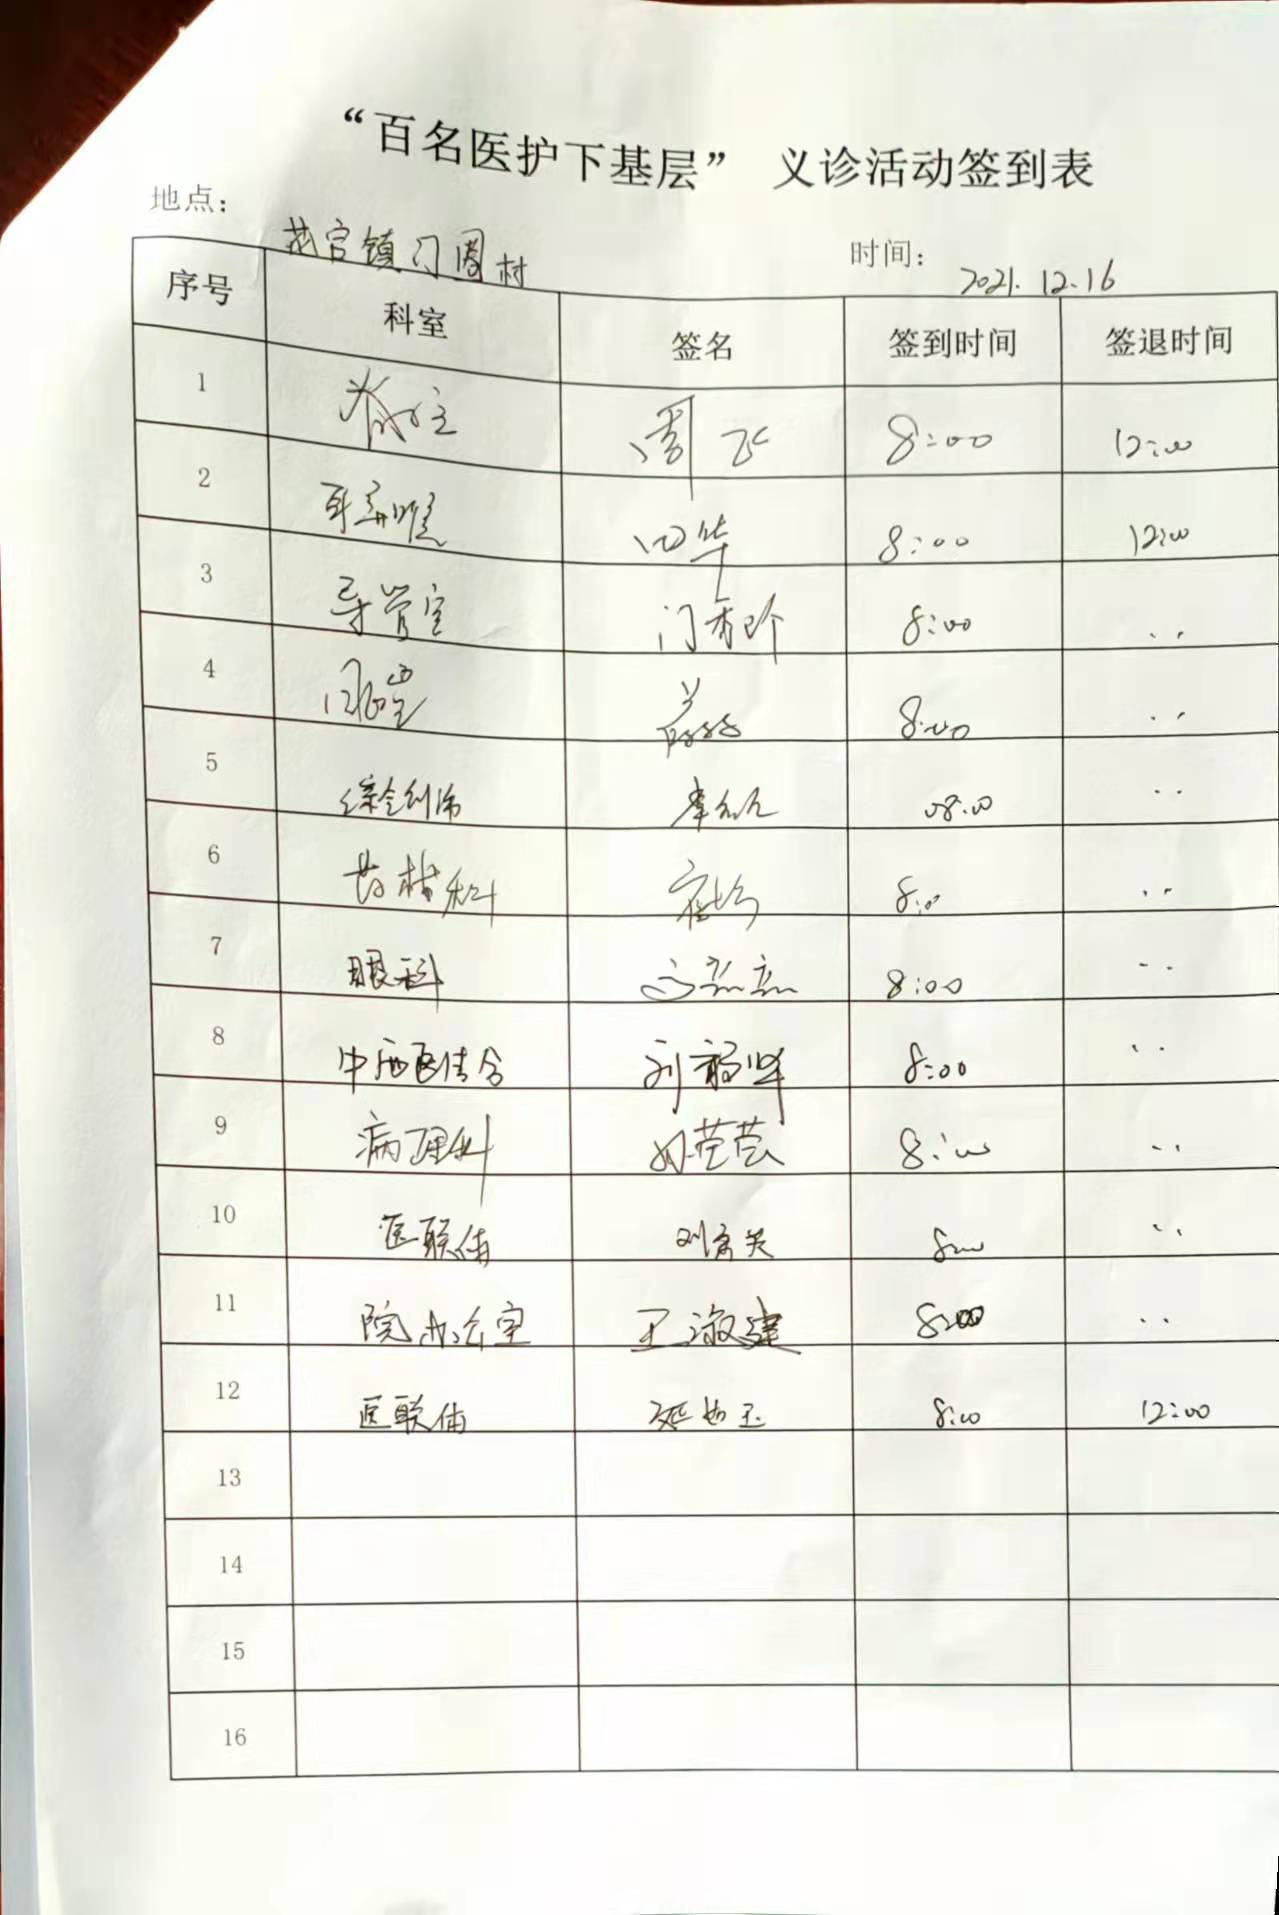 “百名医护下基层” 义诊活动签到表
地点： 花官镇门圈村
时间： 2021.12.16
序号 科室 签名 签到时间 签退时间
1 周飞 8:00 12:00
2 耳鼻喉 8:00 12:00
3 导管室 门秀玲 8:00 ..
4 8:00 ..
5 综合创伤 08:00 ..
6 科 8:0 ..
7 眼科 8:00 ..
8 中西医结合 刘福坤 8:00 ..
9 病理科 8:00 ..
10 医联体 8:00 ..
11 院办公室 王淑建 8:00 ..
12 医联体 延如玉 8:00 12:00
13
14
15
16